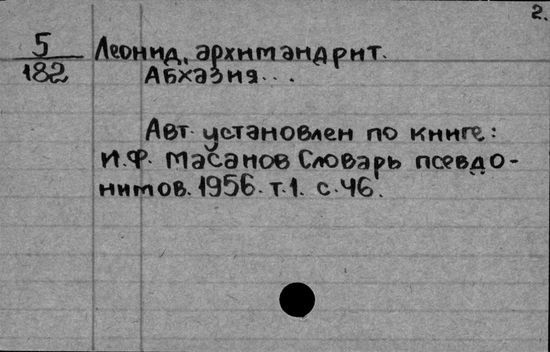 2.
5
182
Леонид, архимандрит.
Абхазия...
Авт. установлен по книге:
И.Ф. Масанов Словарь псевдо-
нимов. 1956. т.1. с.46.